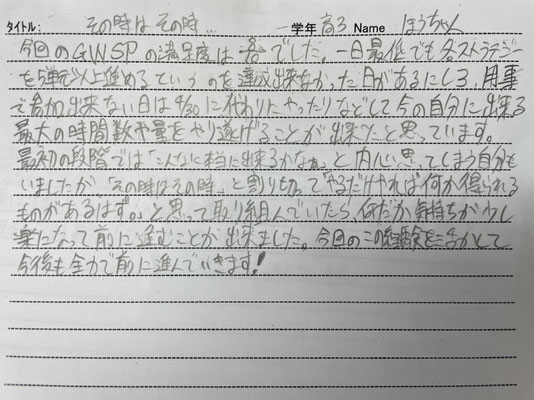 タイトル: その時はその時… 学年 高3 Name ほうちゃん
今回のGWSPの満足度は でした。一日最低でも各ストラテジー
を5単元以上進めるというのを達成出来なかった日があるにしろ、用事
で参加出来ない日は4/30に代わりにやったりなどして今の自分に出来る
最大の時間数や量をやり遂げることが出来たと思っています。
最初の段階では「こんなに本当に出来るかなぁ」と内心思ってしまう自分も
いましたが「その時はその時。」と割り切って「やるだけやれば何か得られる
ものがあるはず。」と思って取り組んでいたら、何だか気持ちが少し
楽になって前に進むことが出来ました。今回のこの経験を活かして
今後も全力で前に進んでいきます!